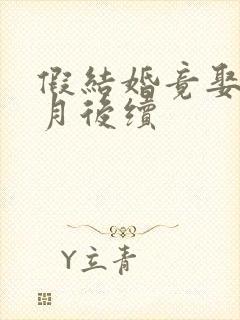 假結婚竟娶
月後續
Y立青